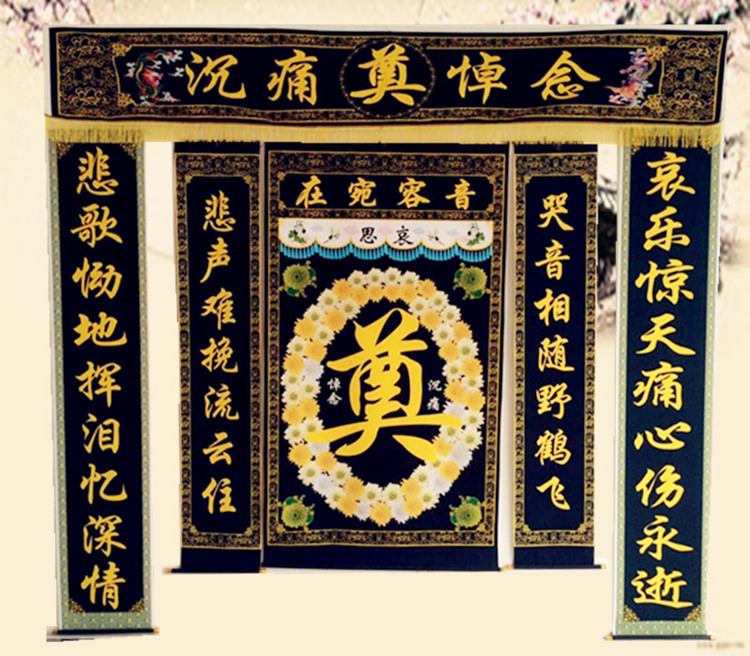 沉痛奠悼念
哀乐惊天痛心伤永逝
悲歌恸地挥泪忆深情
哭音相随野鹤飞
悲声难挽流云住
音容宛在
哀思
沉痛
奠
悼念